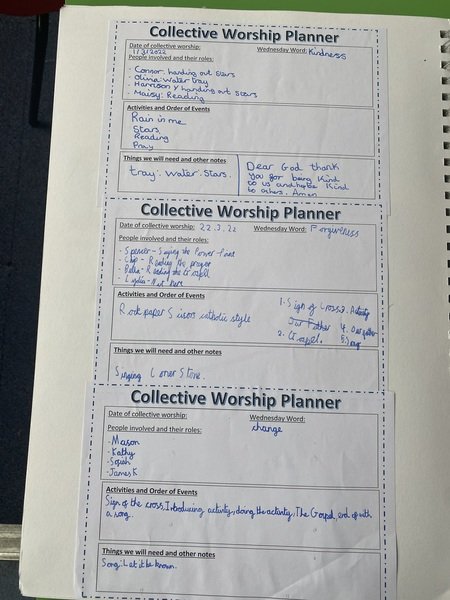 Collective Worship Planner
Date of collective worship: Wednesday Word: Kindness
1/3/2022
People involved and their roles:
· Connor. handing out stars
· Olivia water tray
· Harrison handing out stars
· Maisy: Reading
Activities and Order of Events
Rain in me
Stars
Reading
Pray
Things we will need and other notes
tray. water. Stars.
Dear God thank
you for being kind
to us and kind
to others. Amen
Collective Worship Planner
Date of collective worship: 22.3.22 Wednesday Word: Forgiveness
People involved and their roles:
- Spencer - Saying the Power Point
- Reading the prayer
- Bella - Reading the Gospel
- Lydia -
Activities and Order of Events
Rock paper Sisors catholic style
1. Sign of Cross 3. Activity
Our Father 4. Our father
2. Gospel. 5. Song
Things we will need and other notes
Singing Stone.
Collective Worship Planner
Date of collective worship: Wednesday Word:
change
People involved and their roles:
· Mason
· Kathy
· James K
Activities and Order of Events
Sign of the cross, Introducing activity, doing the activity, The Gospel, end of with
a song.
Things we will need and other notes
Song: Let it be known.